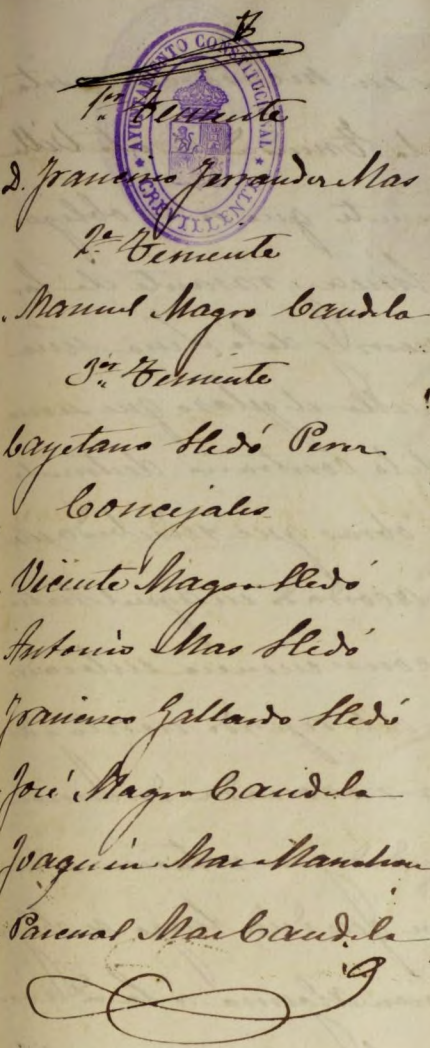 AYUNTAMIENTO CONSTITUCIONAL
CREVILLENTE
1er Teniente
D. Francisco Ferrandez Mas
2º Teniente
Manuel Magro Candela
3er Teniente
Cayetano Lledó Perez
Concejales
Vicente Magro Lledó
Antonio Mas Lledó
Francisco Gallardo Lledó
José Magro Candela
Joaquin Mas Manchon
Pascual Mas Candela